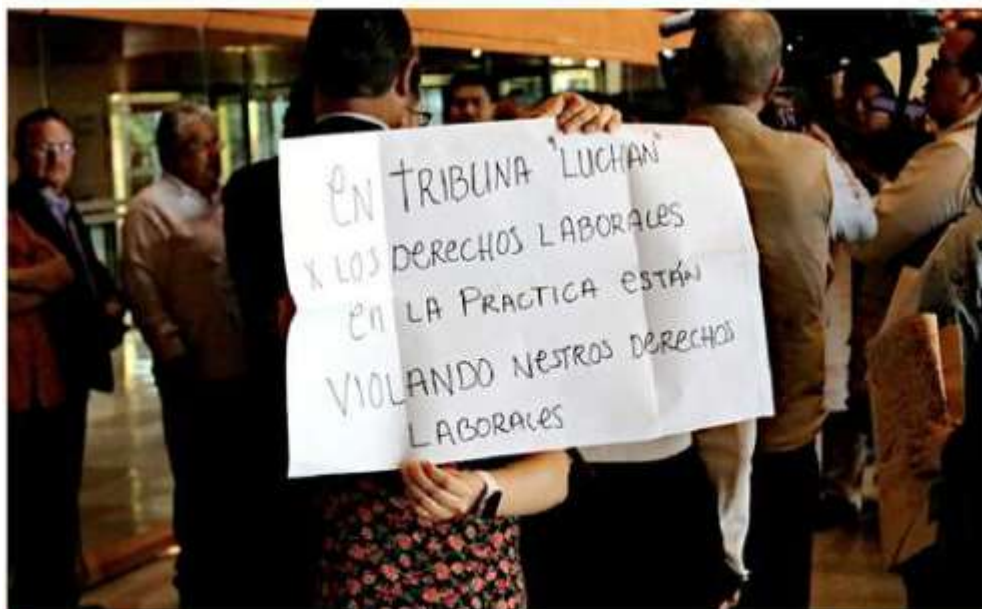 EN TRIBUNA "LUCHAN"
X LOS DERECHOS LABORALES
EN LA PRACTICA ESTÁN
VIOLANDO NESTROS DERECHOS
LABORALES